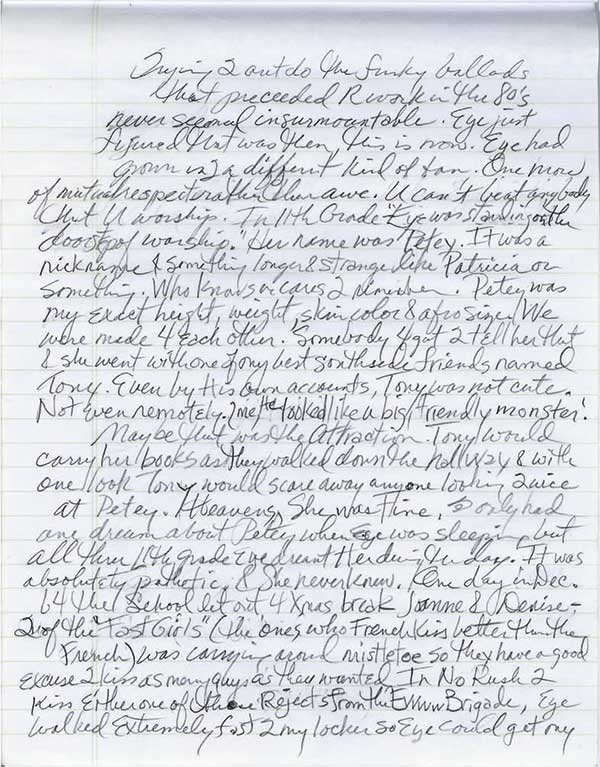 Trying 2 outdo the funky ballads
that preceeded R work in the 80's
never seemed insurmountable. Eye just
figured that was then, this is now. Eye had
grown in2 a different kind of fan. One more
of mutual respect rather than awe. U can't beat anybody
that U worship. In 11th Grade "Eye was standing on the
doorstep of worship." Her name was Petey. It was a
nickname 4 something longer & strange like Patricia or
something. Who knows or cares 2 remember. Petey was
my exact height, weight, skin color & afro size. We
were made 4 each other. Somebody 4got 2 tell her that
& she went with one of my best southside friends named
Tony. Even by His own accounts, Tony was not cute.
Not Even remotely. 2 me, He looked like a big, friendly monster.
Maybe that was the Attraction. Tony would
carry her books as they walked down the hallway & with
one look Tony would scare away anyone looking 2wice
at Petey. Heavens, She was Fine. Eye only had
one dream about Petey when Eye was sleeping but
all thru 11th grade Eye dreamt Her during the day. It was
absolutely pathetic, & She never knew. One day in Dec.
b4 the School let out 4 Xmas break Joanne & Denise -
2 of the "Fast Girls" (the ones who French Kiss better than the
French) was carrying around mistletoe so they have a good
excuse 2 kiss as many guys as they wanted. In No Rush 2
Kiss Either one of these Rejects from the Ewww Brigade, Eye
walked Extremely fast 2 my locker so Eye could get my